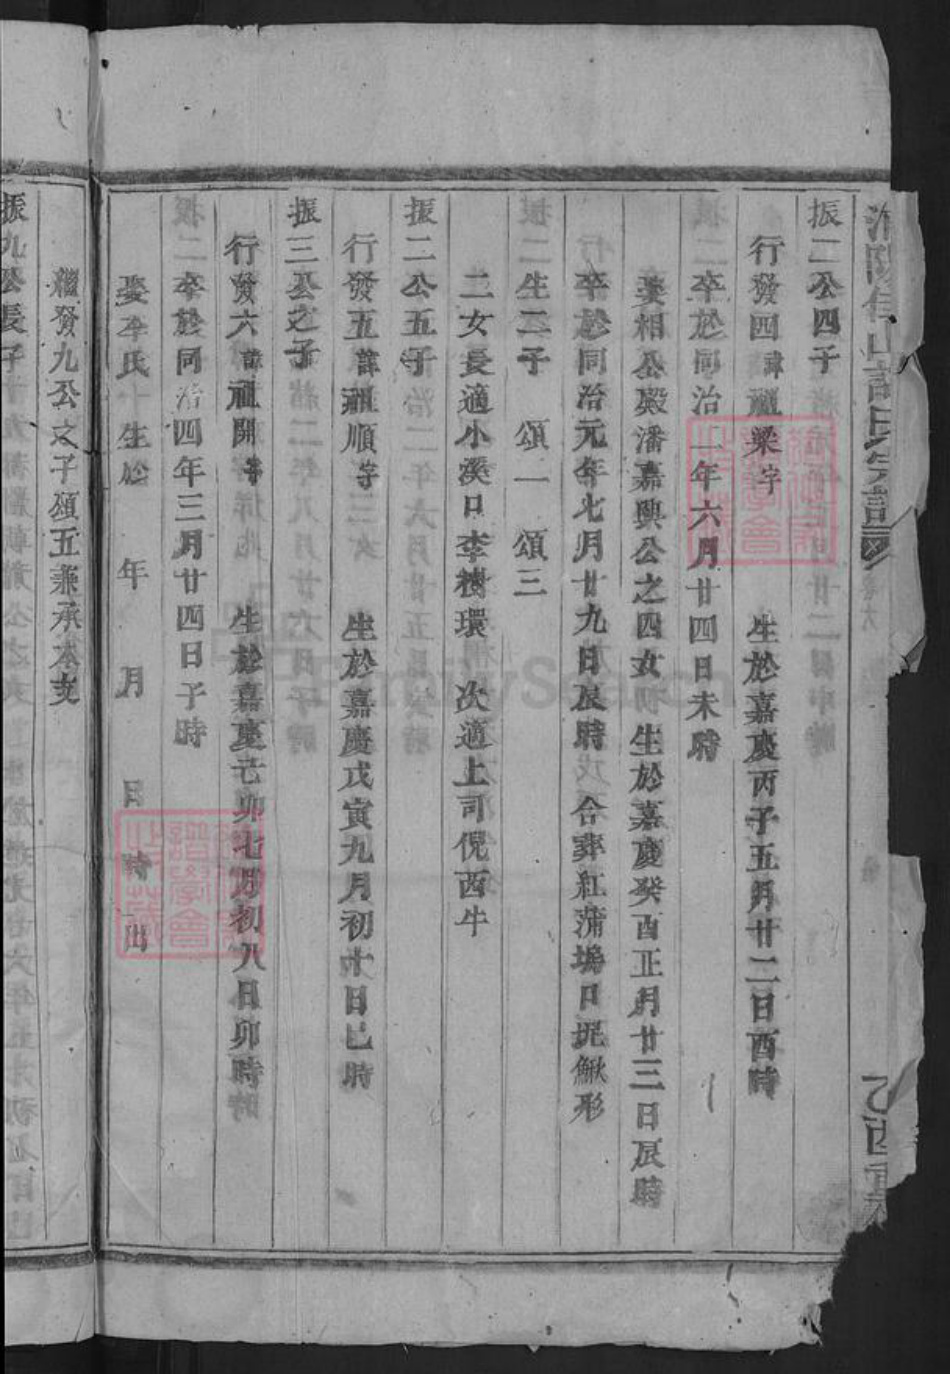 振二公四子
行發四諱祖樂字 生於嘉慶丙子五月廿二日酉時
卒於同治 年六月廿四日未時
娶相公殿潘嘉興公之四女 生於嘉慶癸酉正月廿三日辰時
卒於同治元年七月廿九日辰時 合葬紅蒲塢口坭鰍形
生二子 頌一 頌三
二女長適小溪口李樹環 次適上司倪西牛
振二公五子
行發五諱祖順字 生於嘉慶戊寅九月初十日巳時
振三公之子
行發六諱祖開字 生於嘉慶己卯七月初八日卯時
卒於同治四年三月廿四日子時
娶李氏 生於 年 月 日 時 出
繼發九公之子頌五兼承本支
振九公長子
乙酉重